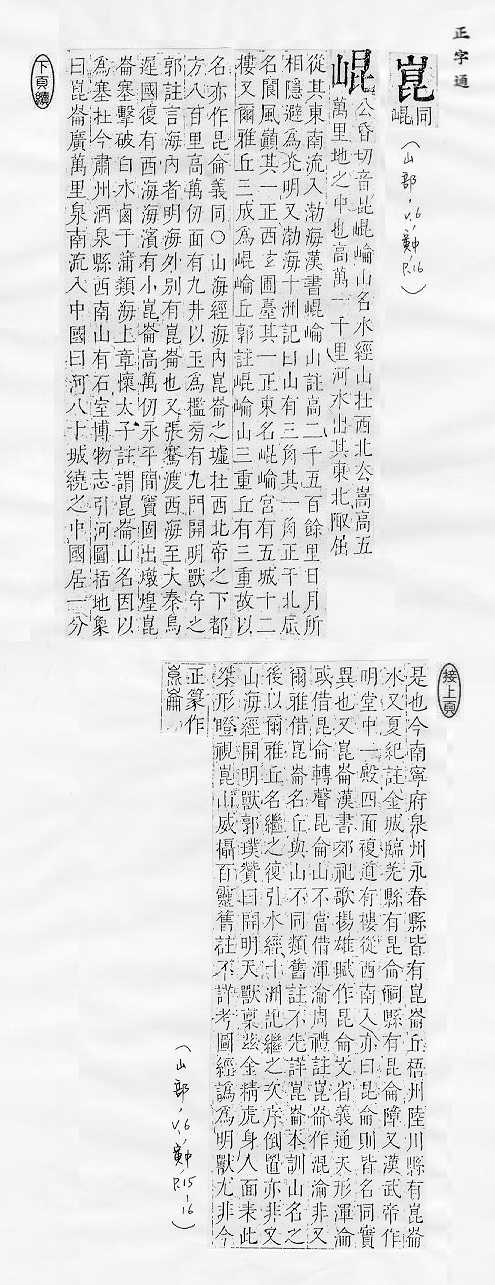 正字通
崑 同崐
（山部，v.6，寅中 P.16）
崐 公昏切音昆崐崘山名水經山在西北去嵩高五
萬里地之中也高萬一千里河水出其東北陬屈
從其東南流入渤海漢書崐崘山註高二千五百餘里日月所
相隱避為光明又渤海十洲記曰山有三角其一角正干北辰
名閬風巔其一正西玄圃臺其一正東名崐崘宮有五城十二
樓又爾雅丘三成為崐崘丘郭註崐崘山三重丘有三重故以
名亦作昆侖義同○山海經海內崑崙之墟在西北帝之下都
方八百里高萬仞面有九井以玉為檻旁有九門開明獸守之
郭註言海內者明海外別有崑崙也又張騫渡西海至大秦烏
遲國復有西海海濱有小崑崙高萬仞永平間竇固出燉煌崑
崙塞擊破白水鹵于蒲類海上章懷太子註謂崑崙山名因以
為塞在今肅州酒泉縣西南山有石室博物志引河圖括地象
曰崑崙廣萬里泉南流入中國曰河八十城繞之中國居一分
下頁續
接上頁
是也今南寧府泉州永春縣皆有崑崙丘梧州陸川縣有崑崙
水又夏紀註金城臨羌縣有昆侖祠縣有昆侖障又漢武帝作
明堂中一殿四面複道有樓從西南入亦曰昆侖則皆名同實
異也又崑崙漢書郊祀歌揚雄賦作昆侖文省義通天形渾淪
或借昆侖轉聲昆侖山不當借渾淪周禮註崑崙作混淪非又
爾雅借崑崙名丘與山不同類舊註不先詳崑崙本訓山名之
後以爾雅丘名繼之復引水經十洲記繼之次序倒置亦非又
山海經開明獸郭璞贊曰開明天獸稟茲金精虎身人面表此
桀形瞪視崑山威懾百靈舊註不詳考圖經譌為明獸尤非今
正篆作
崑崙
（山部，v.6，寅中 P.15-16）